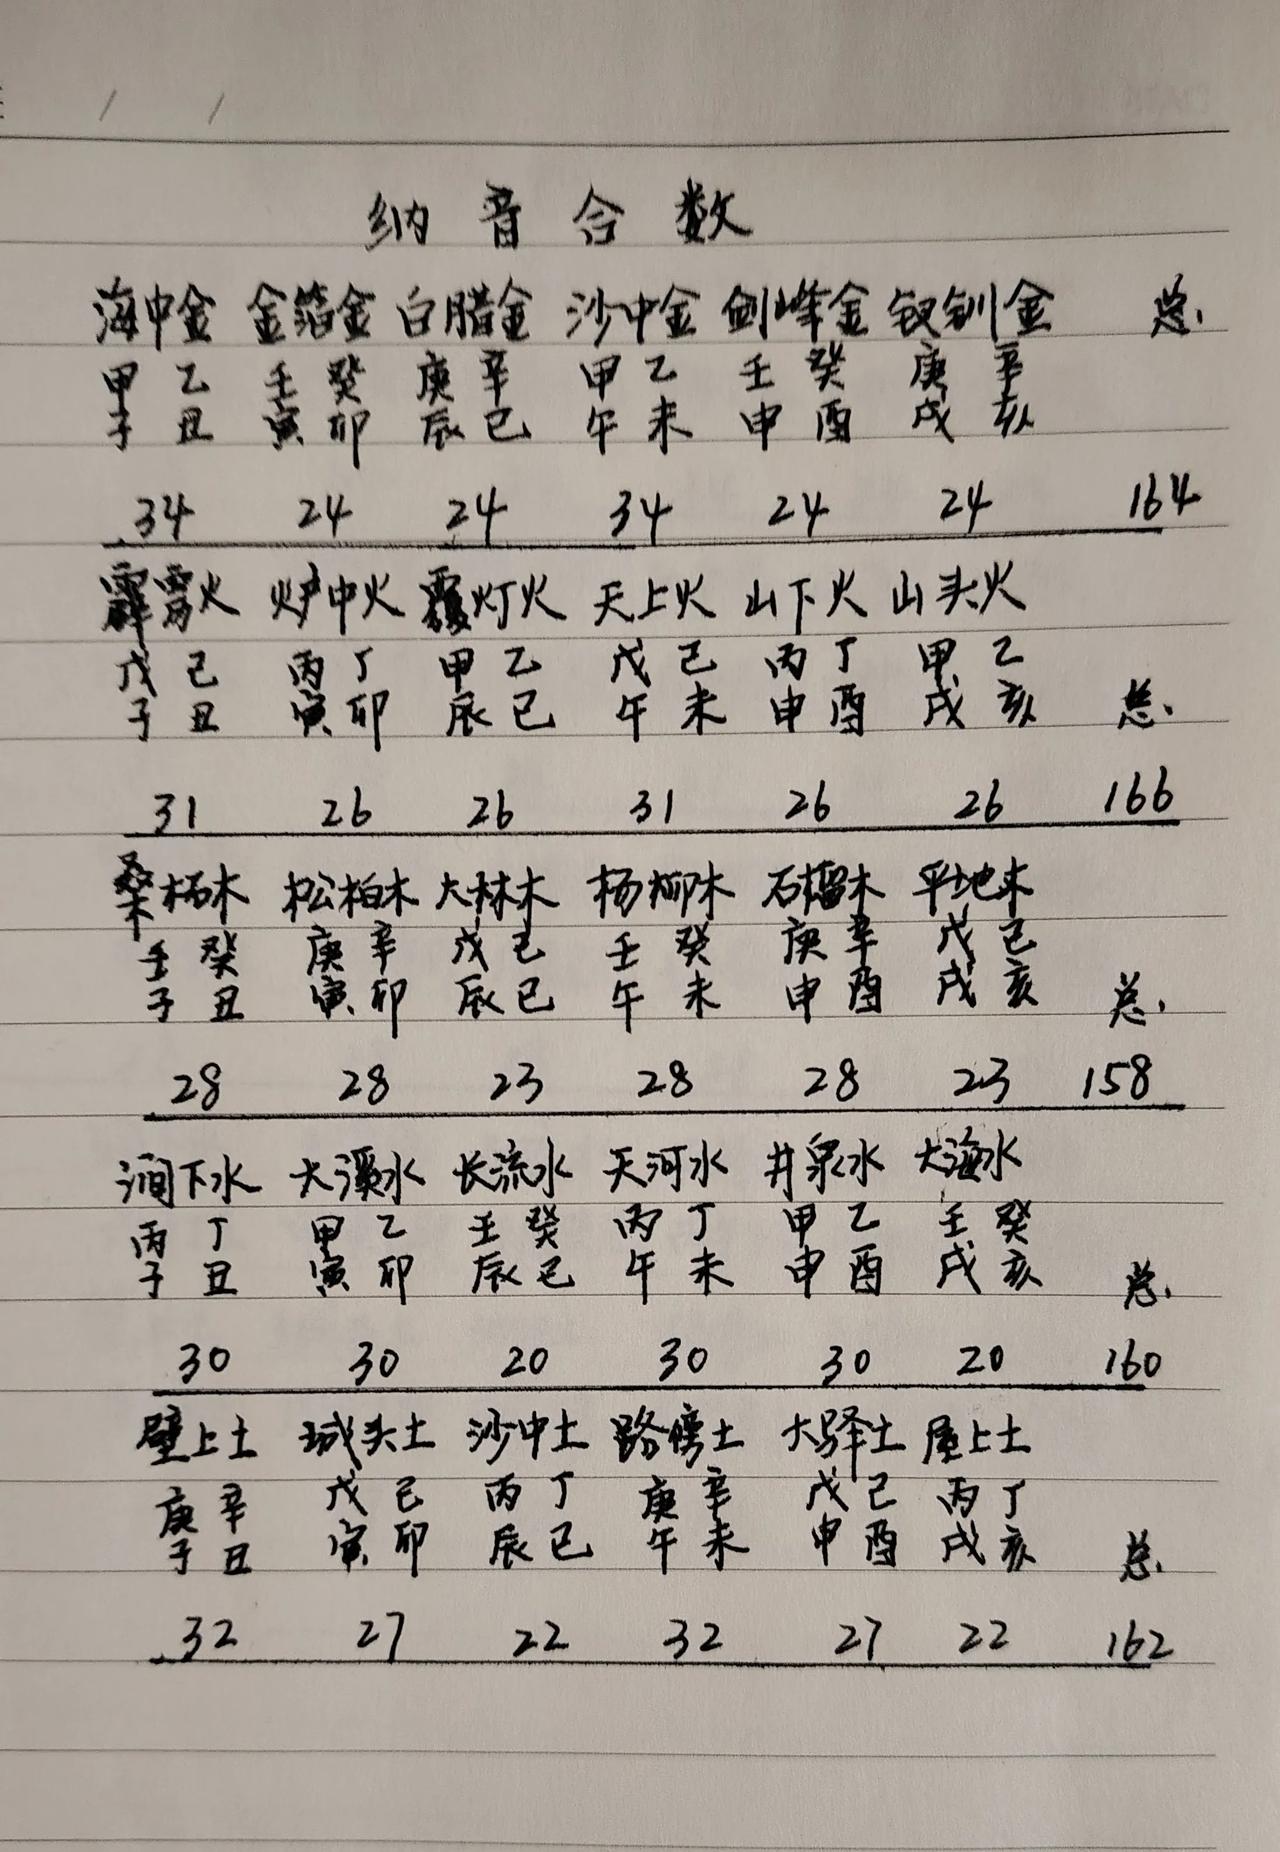 纳音合数
海中金 金箔金 白腊金 沙中金 剑峰金 钗钏金 总.
甲 乙 壬 癸 庚 辛 甲 乙 壬 癸 庚 辛
子 丑 寅 卯 辰 巳 午 未 申 酉 戌 亥
34 24 24 34 24 24 164
霹雳火 炉中火 覆灯火 天上火 山下火 山头火
戊 己 丙 丁 甲 乙 戊 己 丙 丁 甲 乙
子 丑 寅 卯 辰 巳 午 未 申 酉 戌 亥 总.
31 26 26 31 26 26 166
桑柘木 松柏木 大林木 杨柳木 石榴木 平地木
壬 癸 庚 辛 戊 己 壬 癸 庚 辛 戊 己
子 丑 寅 卯 辰 巳 午 未 申 酉 戌 亥 总.
28 28 23 28 28 23 158
涧下水 大溪水 长流水 天河水 井泉水 大海水
丙 丁 甲 乙 壬 癸 丙 丁 甲 乙 壬 癸
子 丑 寅 卯 辰 巳 午 未 申 酉 戌 亥 总.
30 30 20 30 30 20 160
壁上土 城头土 沙中土 路傍土 大驿土 屋上土
庚 辛 戊 己 丙 丁 庚 辛 戊 己 丙 丁
子 丑 寅 卯 辰 巳 午 未 申 酉 戌 亥 总.
32 27 22 32 27 22 162